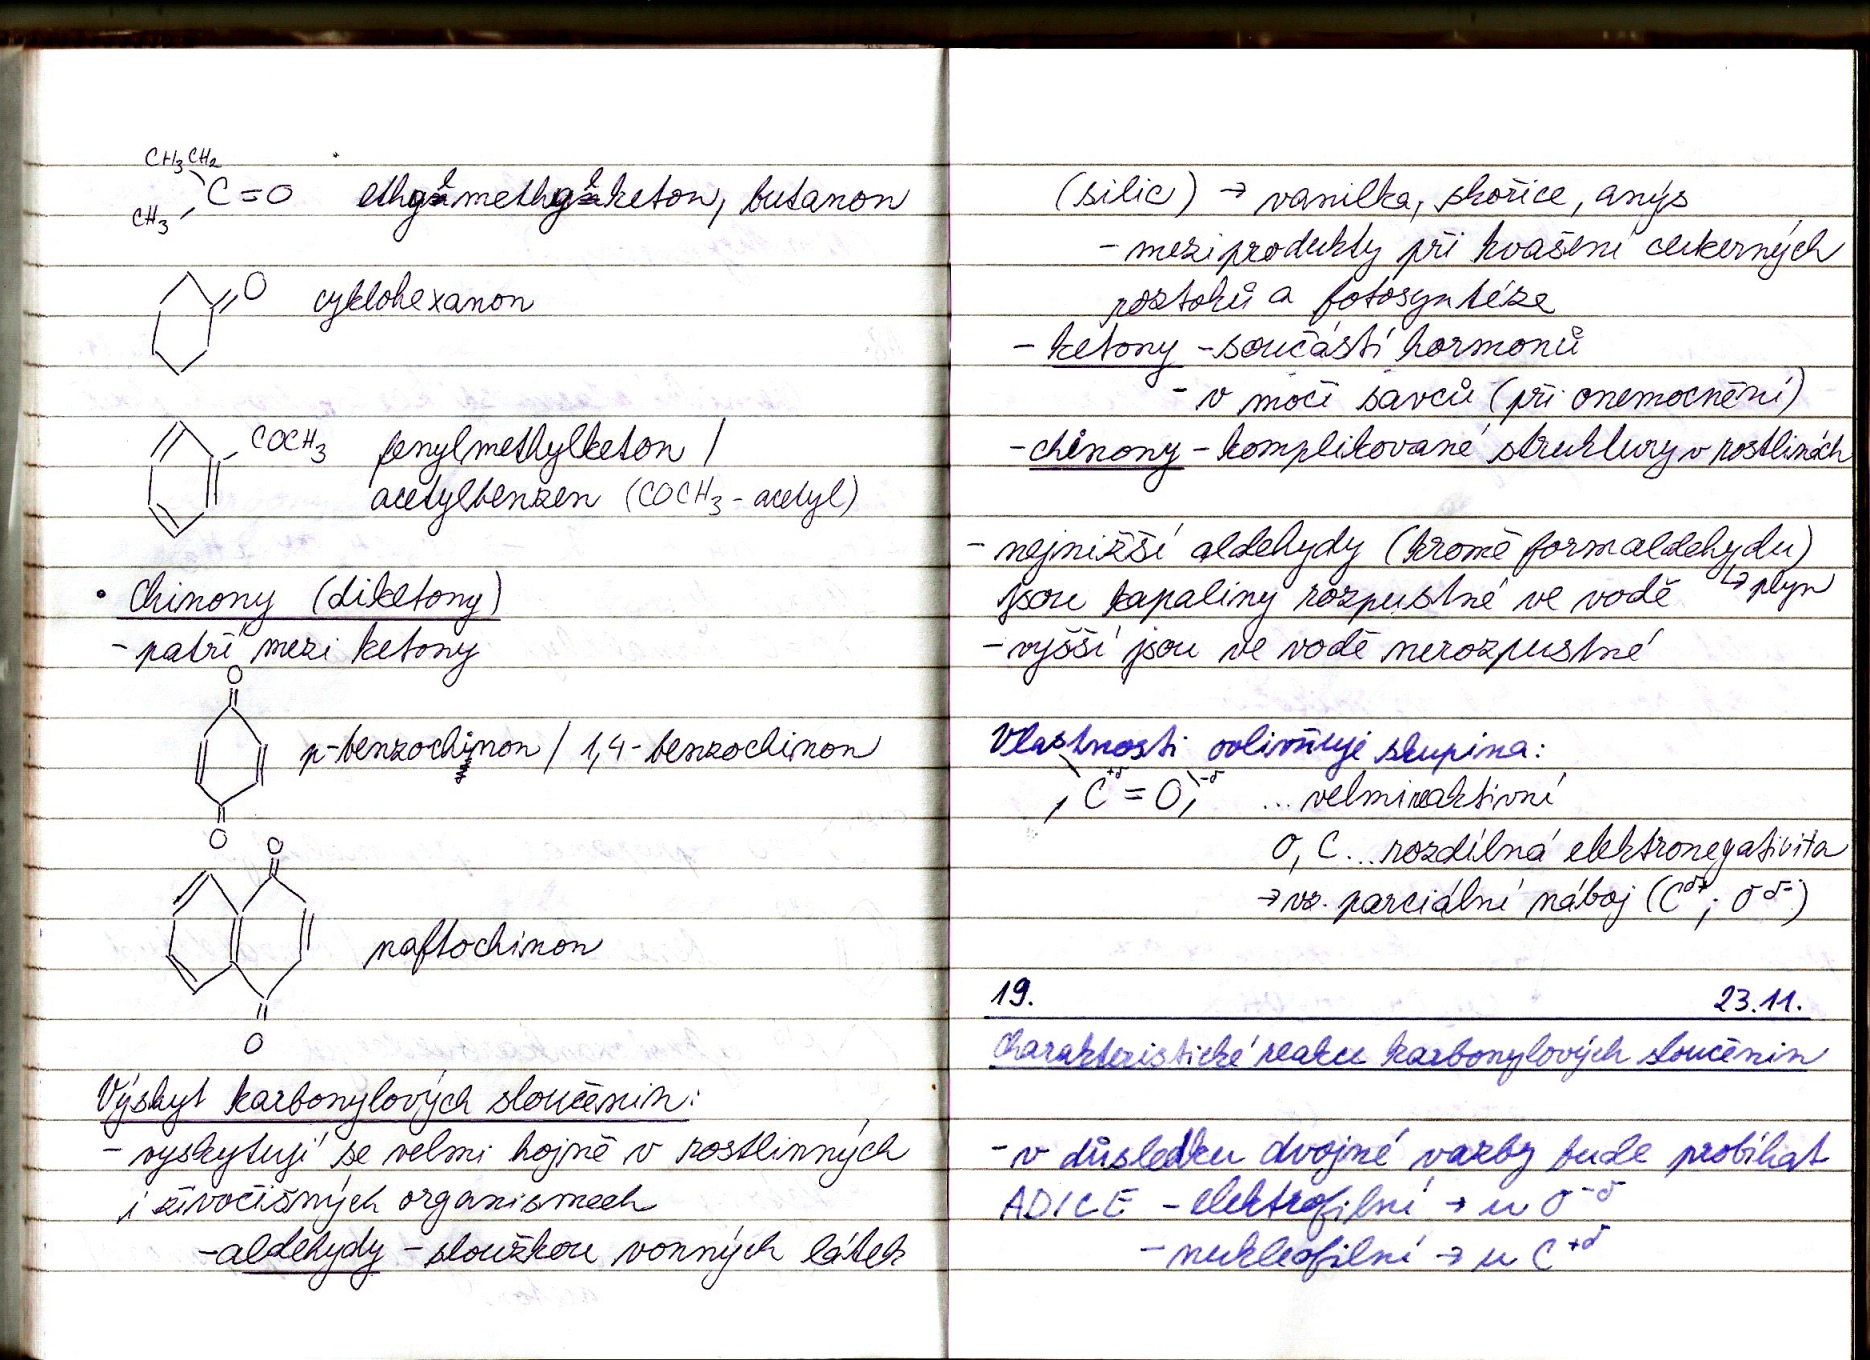 CH3CH2
C=O ethylmethylketon, butanon
CH3
O
cyklohexanon
COCH3 fenylmethylketon /
acetylbenzen (COCH3 - acetyl)
• Chinony (diketony)
- patří mezi ketony
O
p-benzochinon / 1,4-benzochinon
O
O
naftochinon
O
Výskyt karbonylových sloučenin:
- vyskytují se velmi hojně v rostlinných
i živočišných organismech
- aldehydy - složkou vonných látek
(silic) → vanilka, skořice, anýs
- meziprodukty při kvašení cukerných
roztoků a fotosyntéze
- ketony - součástí hormonů
- v moči savců (při onemocnění)
- chinony - komplikované struktury v rostlinách
- nejnižší aldehydy (kromě formaldehydu)
↳ plyn
jsou kapaliny rozpustné ve vodě
- vyšší jsou ve vodě nerozpustné
Vlastnosti ovlivňuje skupina:
C+δ = O-δ ... velmi reaktivní
O, C ... rozdílná elektronegativita
→ vz. parciální náboj (Cδ+; Oδ-)
19. 23.11.
Charakteristické reakce karbonylových sloučenin
- v důsledku dvojné vazby bude probíhat
ADICE - elektrofilní → u O-δ
- nukleofilní → u C+δ